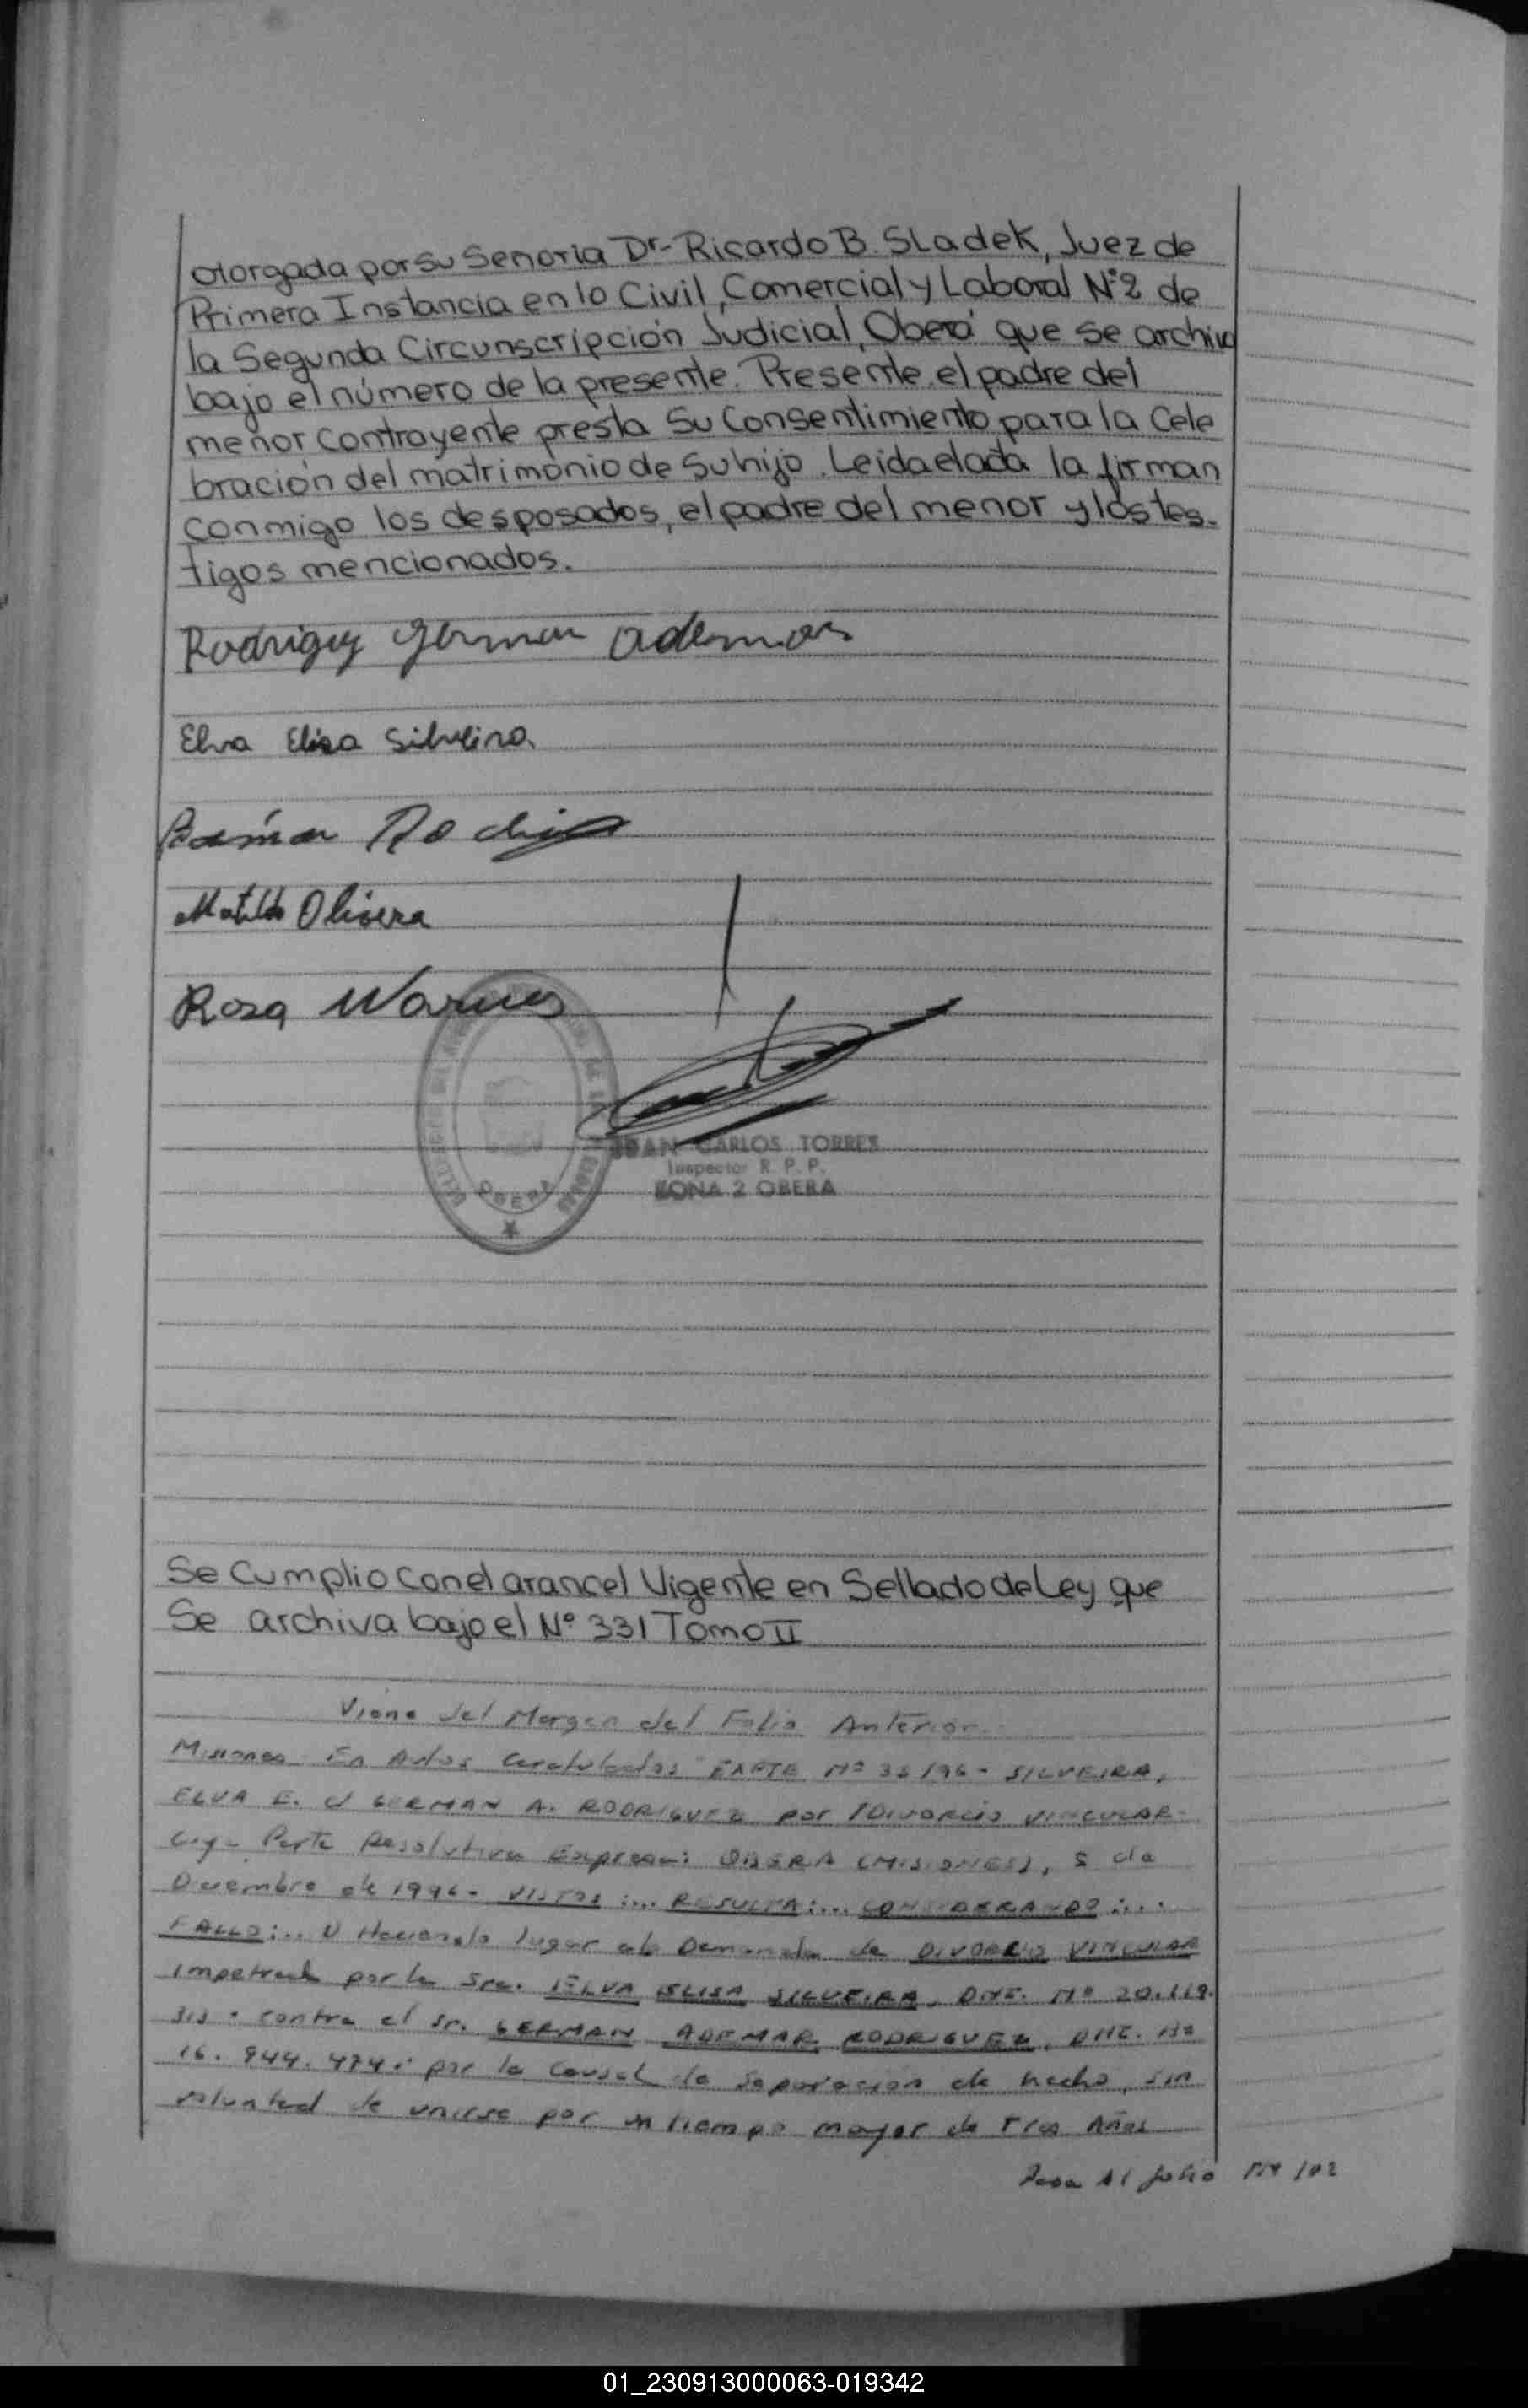 otorgada por su Senoria Dr- Ricardo B. Sladek, Juez de
Primera Instancia en lo Civil, Comercial y Laboral N°2 de
la Segunda Circunscripción Judicial, Oberá que se archiva
bajo el número de la presente. Presente el padre del
menor contrayente presta su Consentimiento para la Cele
bración del matrimonio de su hijo. Leida el acta la firman
conmigo los desposados, el padre del menor y los tes-
tigos mencionados.
Rodriguez German Ademar
Elva Elisa Silveira.
Ramón
Matilde Olivera
Rosa
OBERA
JUAN CARLOS TORRES
Inspector R. P. P.
ZONA 2 OBERA
Se Cumplio con el arancel Vigente en Sellado de Ley que
Se archiva bajo el N° 331 Tomo II
Viene del Margen del Folio Anterior.
Misiones En Autos Caratulados "EXPTE Nº 35/96- SILVEIRA,
ELVA E. c/ GERMAN A. RODRIGUEZ por /Divorcio VINCULAR-
cuya Parte Resolutiva Expresa: OBERA (MISIONES), 5 de
Diciembre de 1996- VISTOS:... RESULTA:... CONSIDERANDO:...
FALLO:... Haciendo lugar a la Demanda de DIVORCIO VINCULAR
impetrada por la Sra. ELVA ELISA SILVEIRA, DNI. Nº 20.119.
contra el Sr. GERMAN ADEMAR RODRIGUEZ, DNI. Nº
16.944.474.- por la causal de separación de hecho, sin
voluntad de unirse por un tiempo mayor de tres Años
Pasa al folio
01_230913000063-019342